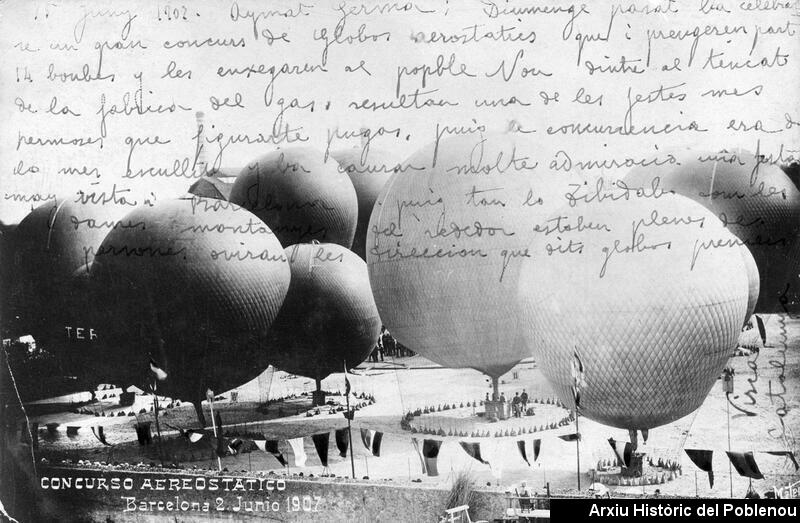 15 Juny 1907. Aymat Germa: Diumenge pasat ba celebrar
se un gran concurs de Globos aerostatics que i prengeren part
14 bonbes y les enxegaren al popble Nou dintre al tencat
de la fabrica del gas, resultan una de les festes mes
permoses que figurarte pugas, puig la concurrencia era d
lo mes escullit y ba causar molte admiració una festa
may vista à Barcelona puig tan lo Tibidabo com les
demes montanyes del rededor estaben plenes de
persones miran les direccion que dits globos prenien
Visca
Catalunya
TER
CONCURSO AEREOSTÁTICO
Barcelona 2. Junio 1907
Arxiu Històric del Poblenou